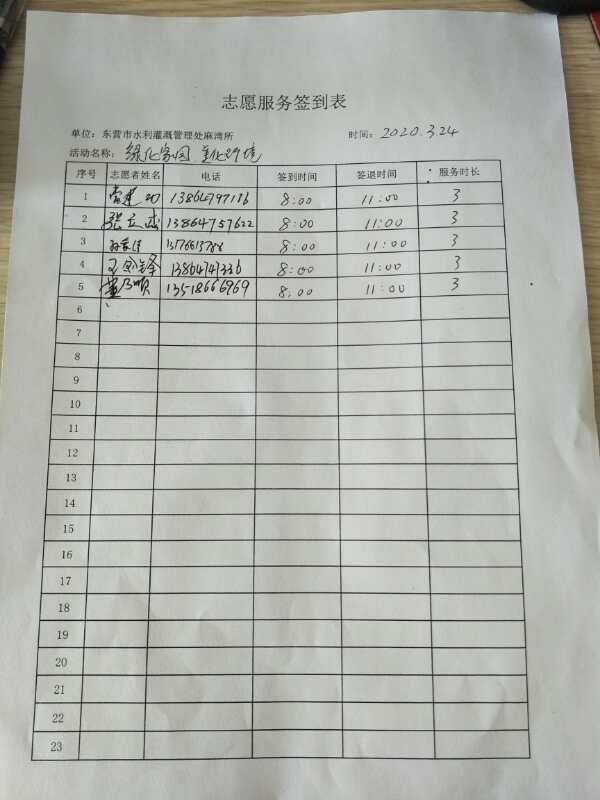 志愿服务签到表
单位：东营市水利灌溉管理处麻湾所 时间：2020.3.24
活动名称：绿化家园 美化环境
序号 志愿者姓名 电话 签到时间 签退时间 服务时长
1 13864797116 8:00 11:00 3
2 张立志 13864757622 8:00 11:00 3
3 8:00 11:00 3
4 13864747336 8:00 11:00 3
5 董乃顺 13518666969 8:00 11:00 3
6
7
8
9
10
11
12
13
14
15
16
17
18
19
20
21
22
23